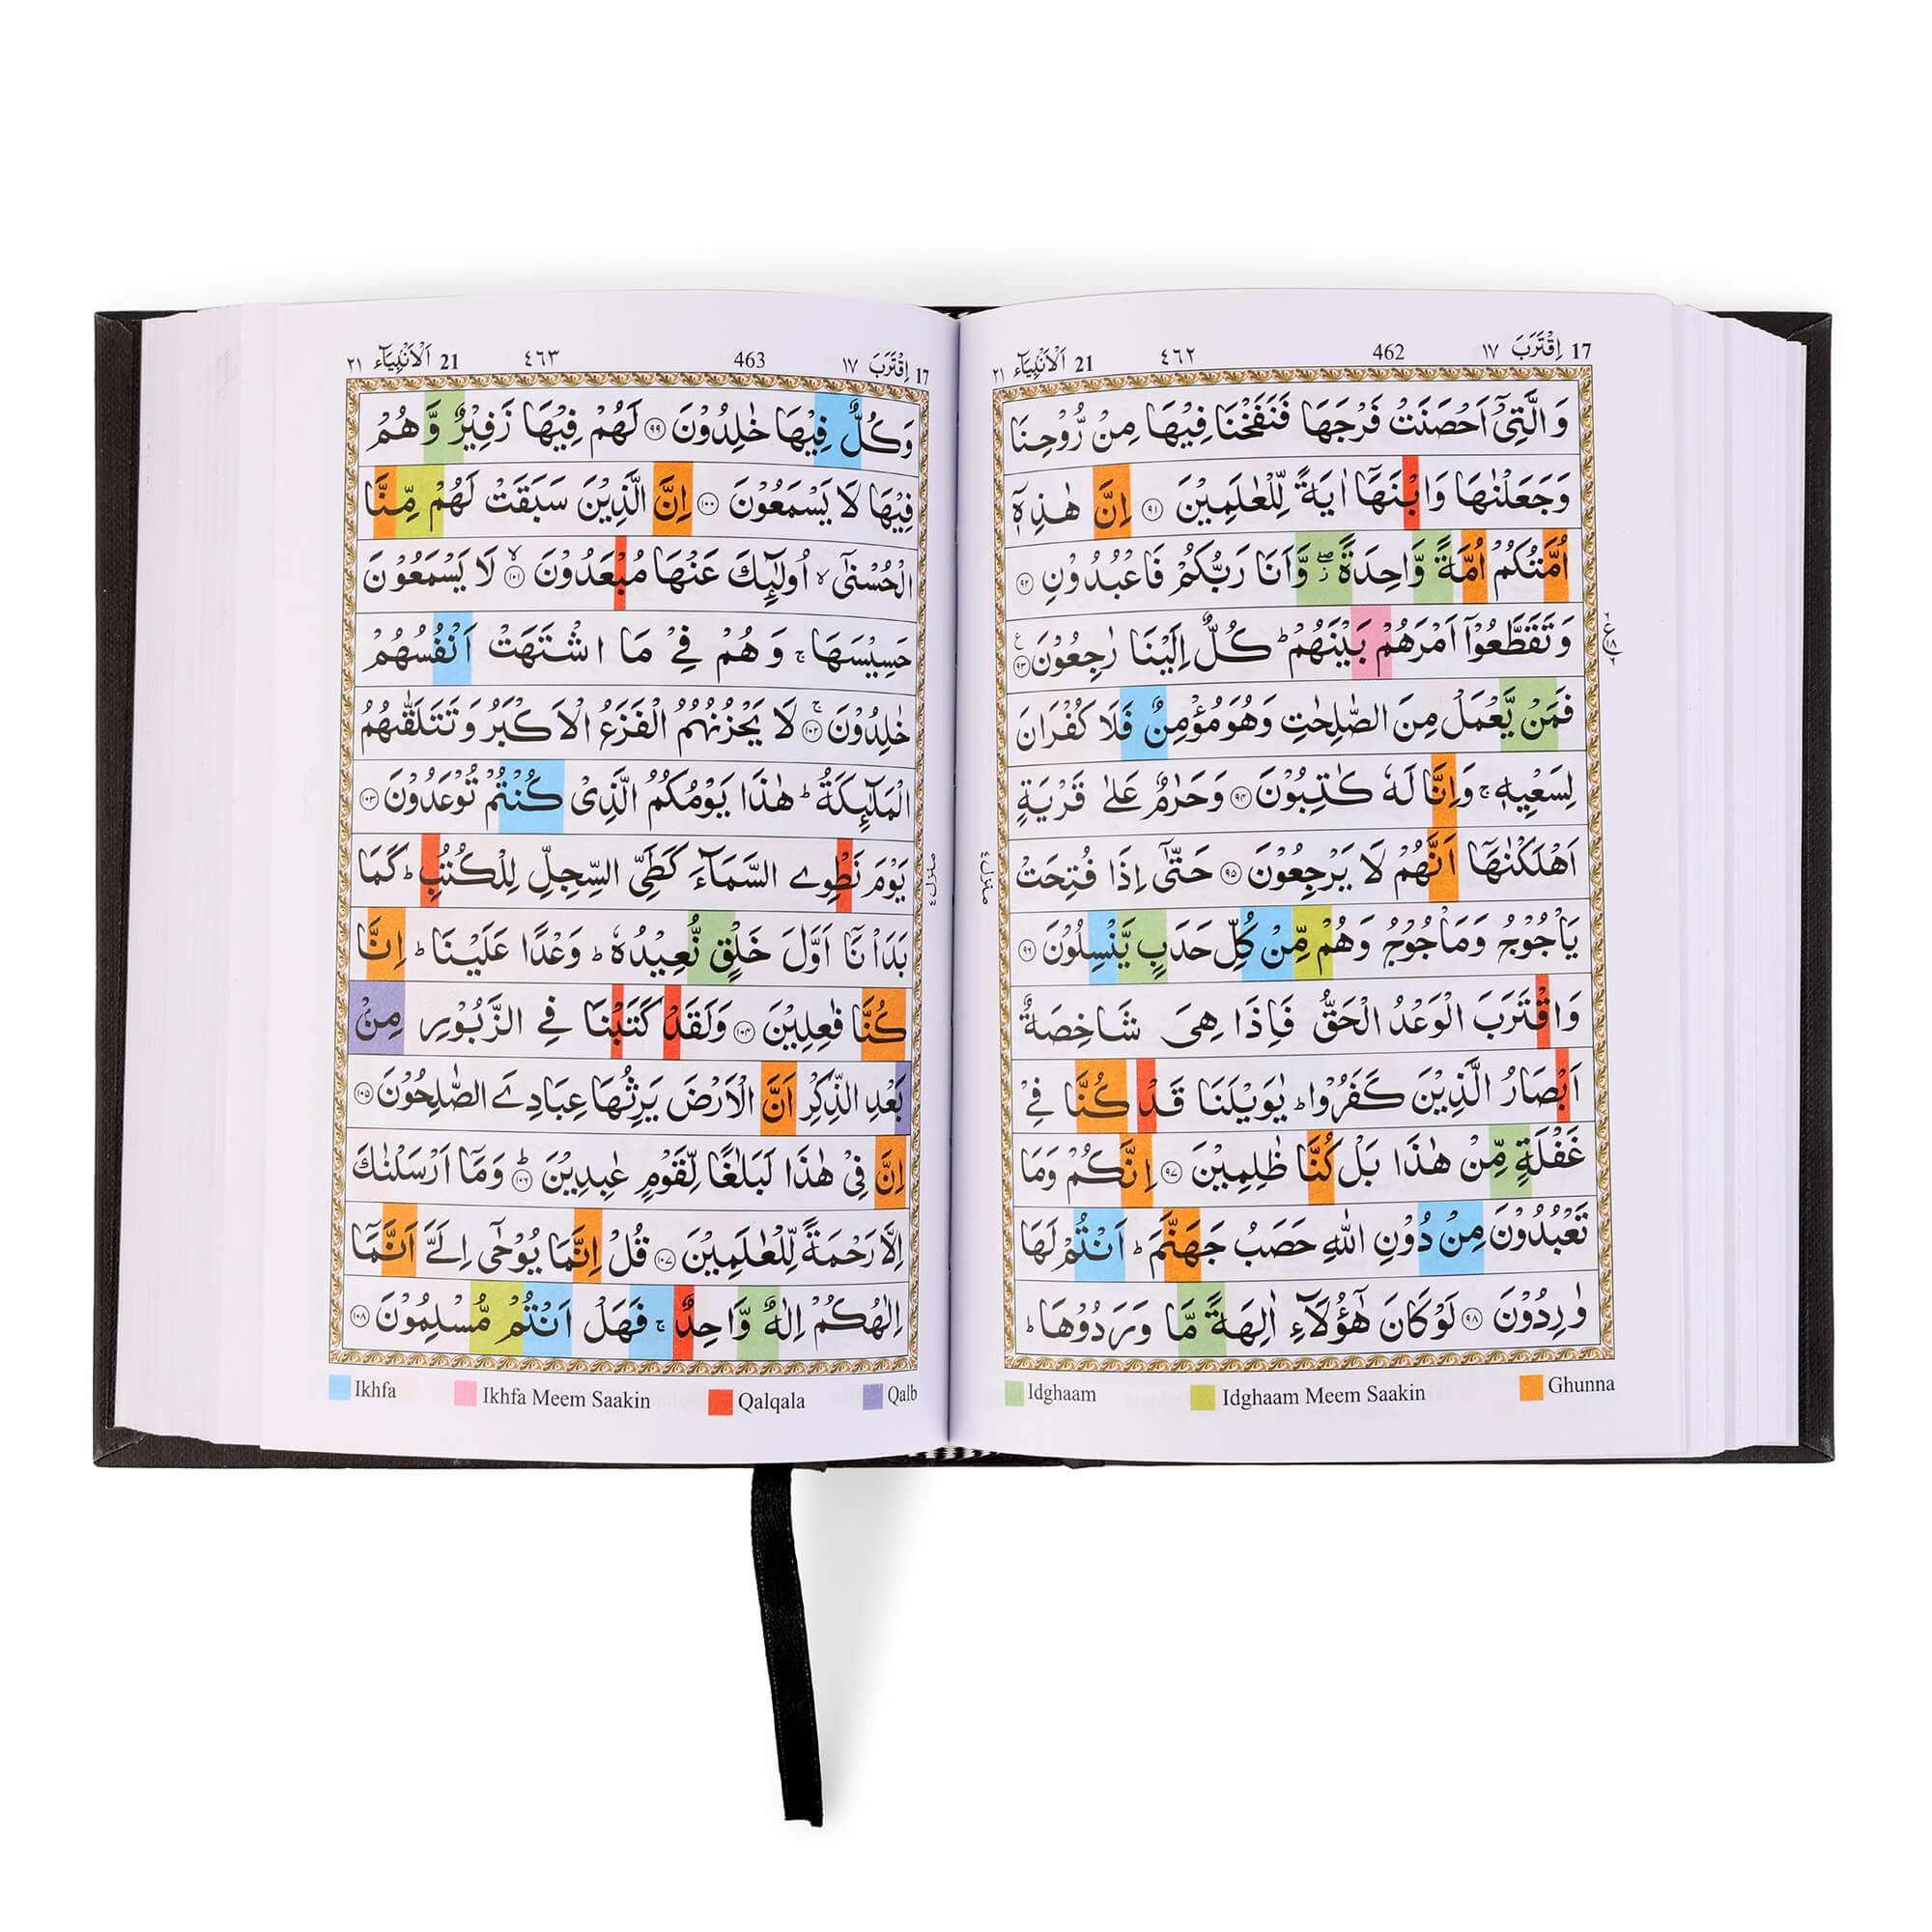 17 اِقْتَرَبَ ١٧ 462 ٤٦٢ 21 اَلْاَنْۢبِيَآء ٢١
وَ الَّتِیْۤ اَحْصَنَتْ فَرْجَهَا فَنَفَخْنَا فِیْهَا مِنْ رُّوْحِنَا
وَجَعَلْنٰهَا وَ ابْنَهَاۤ اٰیَةً لِّلْعٰلَمِیْنَ ۹۱ اِنَّ هٰذِهٖۤ
اُمَّتُكُمْ اُمَّةً وَّاحِدَةً ۖؗ وَّاَنَا رَبُّكُمْ فَاعْبُدُوْنِ ۹۲
وَ تَقَطَّعُوْۤا اَمْرَهُمْ بَیْنَهُمْ ؕ كُلٌّ اِلَیْنَا رٰجِعُوْنَ ۹۳ ع
فَمَنْ یَّعْمَلْ مِنَ الصّٰلِحٰتِ وَهُوَ مُؤْمِنٌ فَلَا كُفْرَانَ
لِسَعْیِهٖ ۚ وَ اِنَّا لَهٗ كٰتِبُوْنَ ۹۴ وَ حَرٰمٌ عَلٰی قَرْیَةٍ
اَهْلَكْنٰهَاۤ اَنَّهُمْ لَا یَرْجِعُوْنَ ۹۵ حَتّٰۤی اِذَا فُتِحَتْ
یَاْجُوْجُ وَمَاْجُوْجُ وَهُمْ مِّنْ كُلِّ حَدَبٍ یَّنْسِلُوْنَ ۹۶
وَ اقْتَرَبَ الْوَعْدُ الْحَقُّ فَاِذَا هِیَ شَاخِصَةٌ
اَبْصَارُ الَّذِیْنَ كَفَرُوْا ؕ یٰوَیْلَنَا قَدْ كُنَّا فِیْ
غَفْلَةٍ مِّنْ هٰذَا بَلْ كُنَّا ظٰلِمِیْنَ ۹۷ اِنَّكُمْ وَمَا
تَعْبُدُوْنَ مِنْ دُوْنِ اللّٰهِ حَصَبُ جَهَنَّمَ ؕ اَنْتُمْ لَهَا
وٰرِدُوْنَ ۹۸ لَوْ كَانَ هٰۤؤُلَآءِ اٰلِهَةً مَّا وَرَدُوْهَا ؕ
منزل ٤
Idghaam Idghaam Meem Saakin Ghunna
17 اِقْتَرَبَ ١٧ 463 ٤٦٣ 21 اَلْاَنْۢبِيَآء ٢١
وَ كُلٌّ فِیْهَا خٰلِدُوْنَ ۹۹ لَهُمْ فِیْهَا زَفِیْرٌ وَّ هُمْ
فِیْهَا لَا یَسْمَعُوْنَ ۱۰۰ اِنَّ الَّذِیْنَ سَبَقَتْ لَهُمْ مِّنَّا
الْحُسْنٰۤی ۙ اُولٰٓىِٕكَ عَنْهَا مُبْعَدُوْنَ ۱۰۱ ۙ لَا یَسْمَعُوْنَ
حَسِیْسَهَا ۚ وَ هُمْ فِیْ مَا اشْتَهَتْ اَنْفُسُهُمْ
خٰلِدُوْنَ ۱۰۲ ۚ لَا یَحْزُنُهُمُ الْفَزَعُ الْاَكْبَرُ وَ تَتَلَقّٰىهُمُ
الْمَلٰٓىِٕكَةُ ؕ هٰذَا یَوْمُكُمُ الَّذِیْ كُنْتُمْ تُوْعَدُوْنَ ۱۰۳
یَوْمَ نَطْوِی السَّمَآءَ كَطَیِّ السِّجِلِّ لِلْكُتُبِ ؕ كَمَا
بَدَاْنَاۤ اَوَّلَ خَلْقٍ نُّعِیْدُهٗ ؕ وَعْدًا عَلَیْنَا ؕ اِنَّا
كُنَّا فٰعِلِیْنَ ۱۰۴ وَلَقَدْ كَتَبْنَا فِی الزَّبُوْرِ مِنْ
بَعْدِ الذِّكْرِ اَنَّ الْاَرْضَ یَرِثُهَا عِبَادِیَ الصّٰلِحُوْنَ ۱۰۵
اِنَّ فِیْ هٰذَا لَبَلٰغًا لِّقَوْمٍ عٰبِدِیْنَ ۱۰۶ ؕ وَمَاۤ اَرْسَلْنٰكَ
اِلَّا رَحْمَةً لِّلْعٰلَمِیْنَ ۱۰۷ قُلْ اِنَّمَا یُوْحٰۤی اِلَیَّ اَنَّمَاۤ
اِلٰهُكُمْ اِلٰهٌ وَّاحِدٌ ۚ فَهَلْ اَنْتُمْ مُّسْلِمُوْنَ ۱۰۸
منزل ٤
Ikhfa Ikhfa Meem Saakin Qalqala Qalb